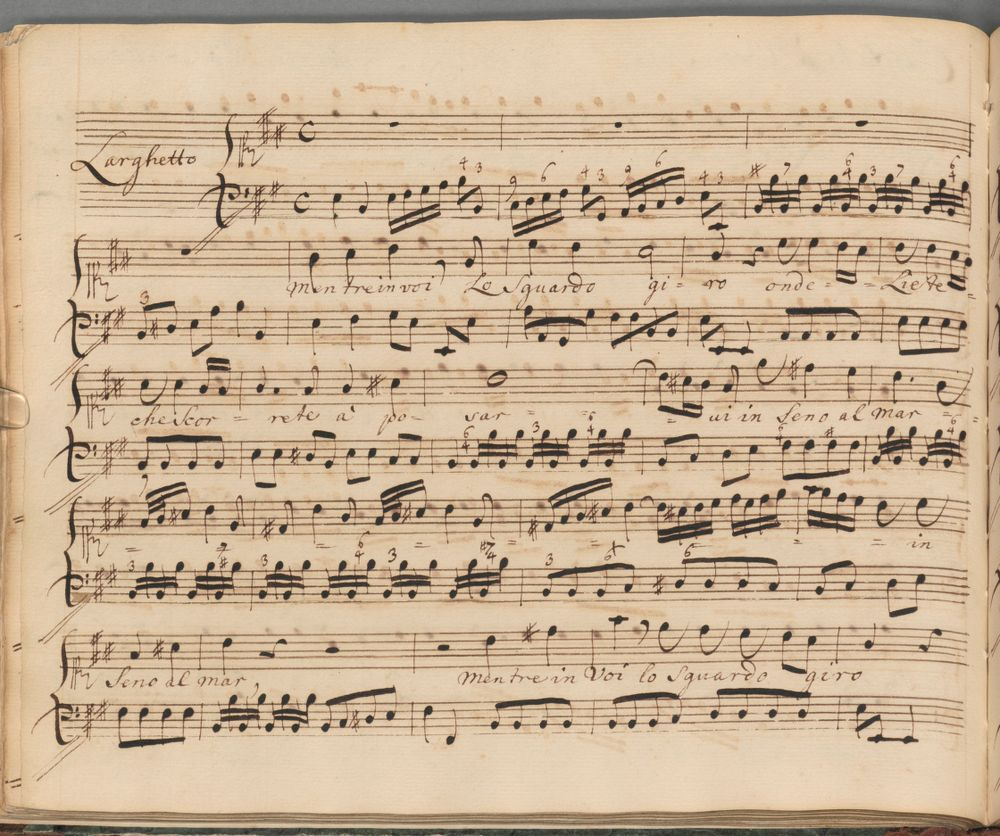 Larghetto
4 3 9 6 4 3 9 6 4 3 # 7 6 4 3 7 6 4
Mentre in voi Lo Sguardo gi - ro onde - - Liete -
3
che Scor - rete à po - sar - - - ui in Seno al Mar -
6 4 3 6 4 6 #
= = = = = = = in
3 # 3 6 4 3 #7 4 3 6 6
Seno al mar, Mentre in Voi lo Sguardo giro